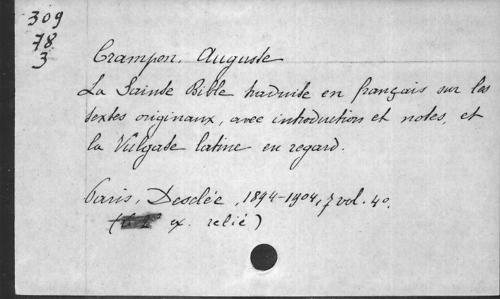 309
78
3
Crampon, Auguste
La Sainte Bible traduite en français sur les
textes originaux, avec introduction et notes, et
la Vulgate latine en regard.
Paris, Desclée, 1894-1904, 7 vol. 4o.
ex. relié)